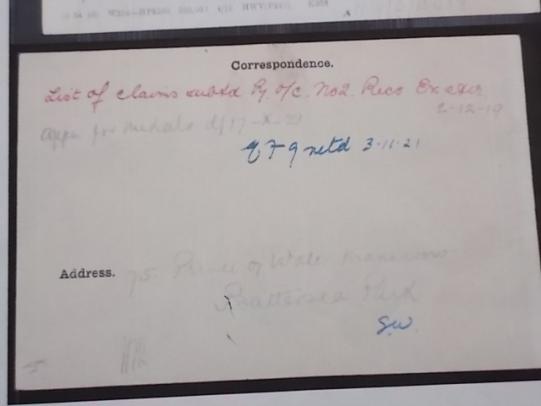 Correspondence.
List of claims subtd by o/c. No2. Recs Exeter
2-12-19
Appn for medals d/ 17-X-21
retd 3-11-21
Address. 75. Prince of Wales Mansions
Battersea Park
SW.